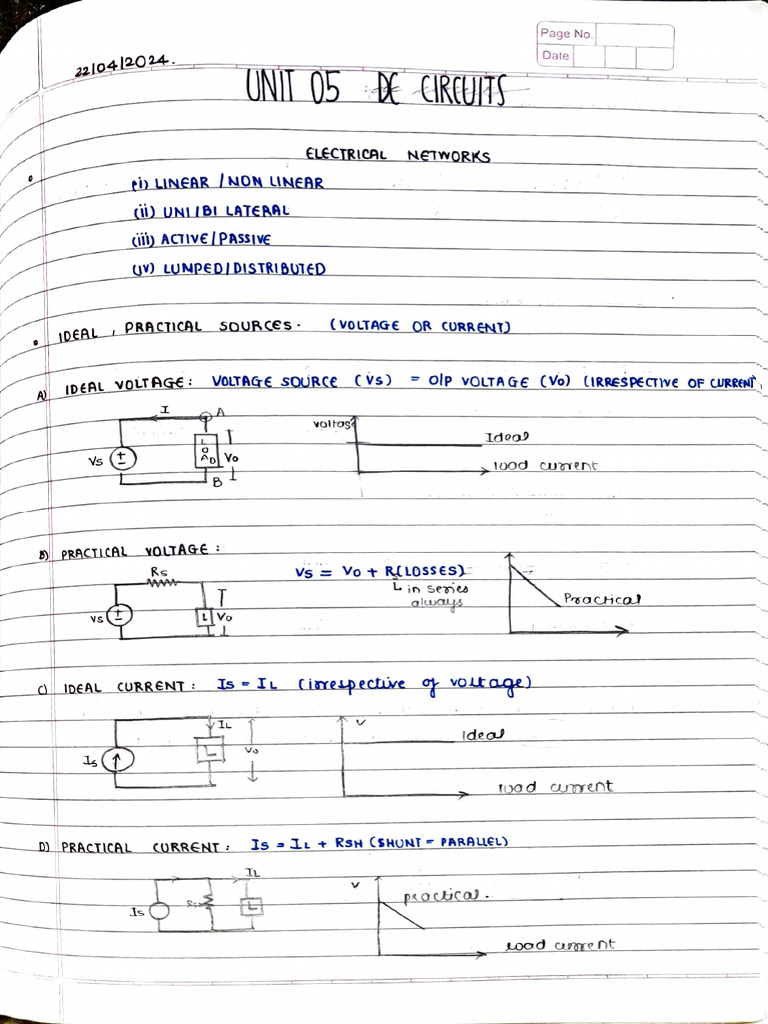 Page No.
Date
22/04/2024.
UNIT 05 DC CIRCUITS
ELECTRICAL NETWORKS
(i) LINEAR / NON LINEAR
(ii) UNI/BI LATERAL
(iii) ACTIVE/PASSIVE
(iv) LUMPED/DISTRIBUTED
IDEAL, PRACTICAL SOURCES. (VOLTAGE OR CURRENT)
A) IDEAL VOLTAGE: VOLTAGE SOURCE (VS) = O/P VOLTAGE (VO) (IRRESPECTIVE OF CURRENT)
I A
Vs + - LOAD Vo
B
Voltag
Ideal
load current
B) PRACTICAL VOLTAGE:
Rs
Vs + - L Vo
VS = VO + R(LOSSES)
in series
always
Practical
C) IDEAL CURRENT: IS = IL (irrespective of voltage)
IL
Is L Vo
V
Ideal
load current
D) PRACTICAL CURRENT: IS = IL + RSH (SHUNT = PARALLEL)
IL
Is L
V
practical.
load current